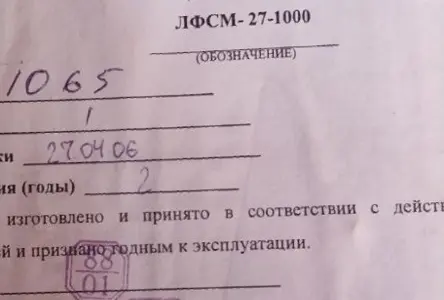 ЛФСМ- 27-1000
(ОБОЗНАЧЕНИЕ)
1065
1
ки 27.04 06
ия (годы) 2
изготовлено и принято в соответствии с действ
ей и признано годным к эксплуатации.
88
01